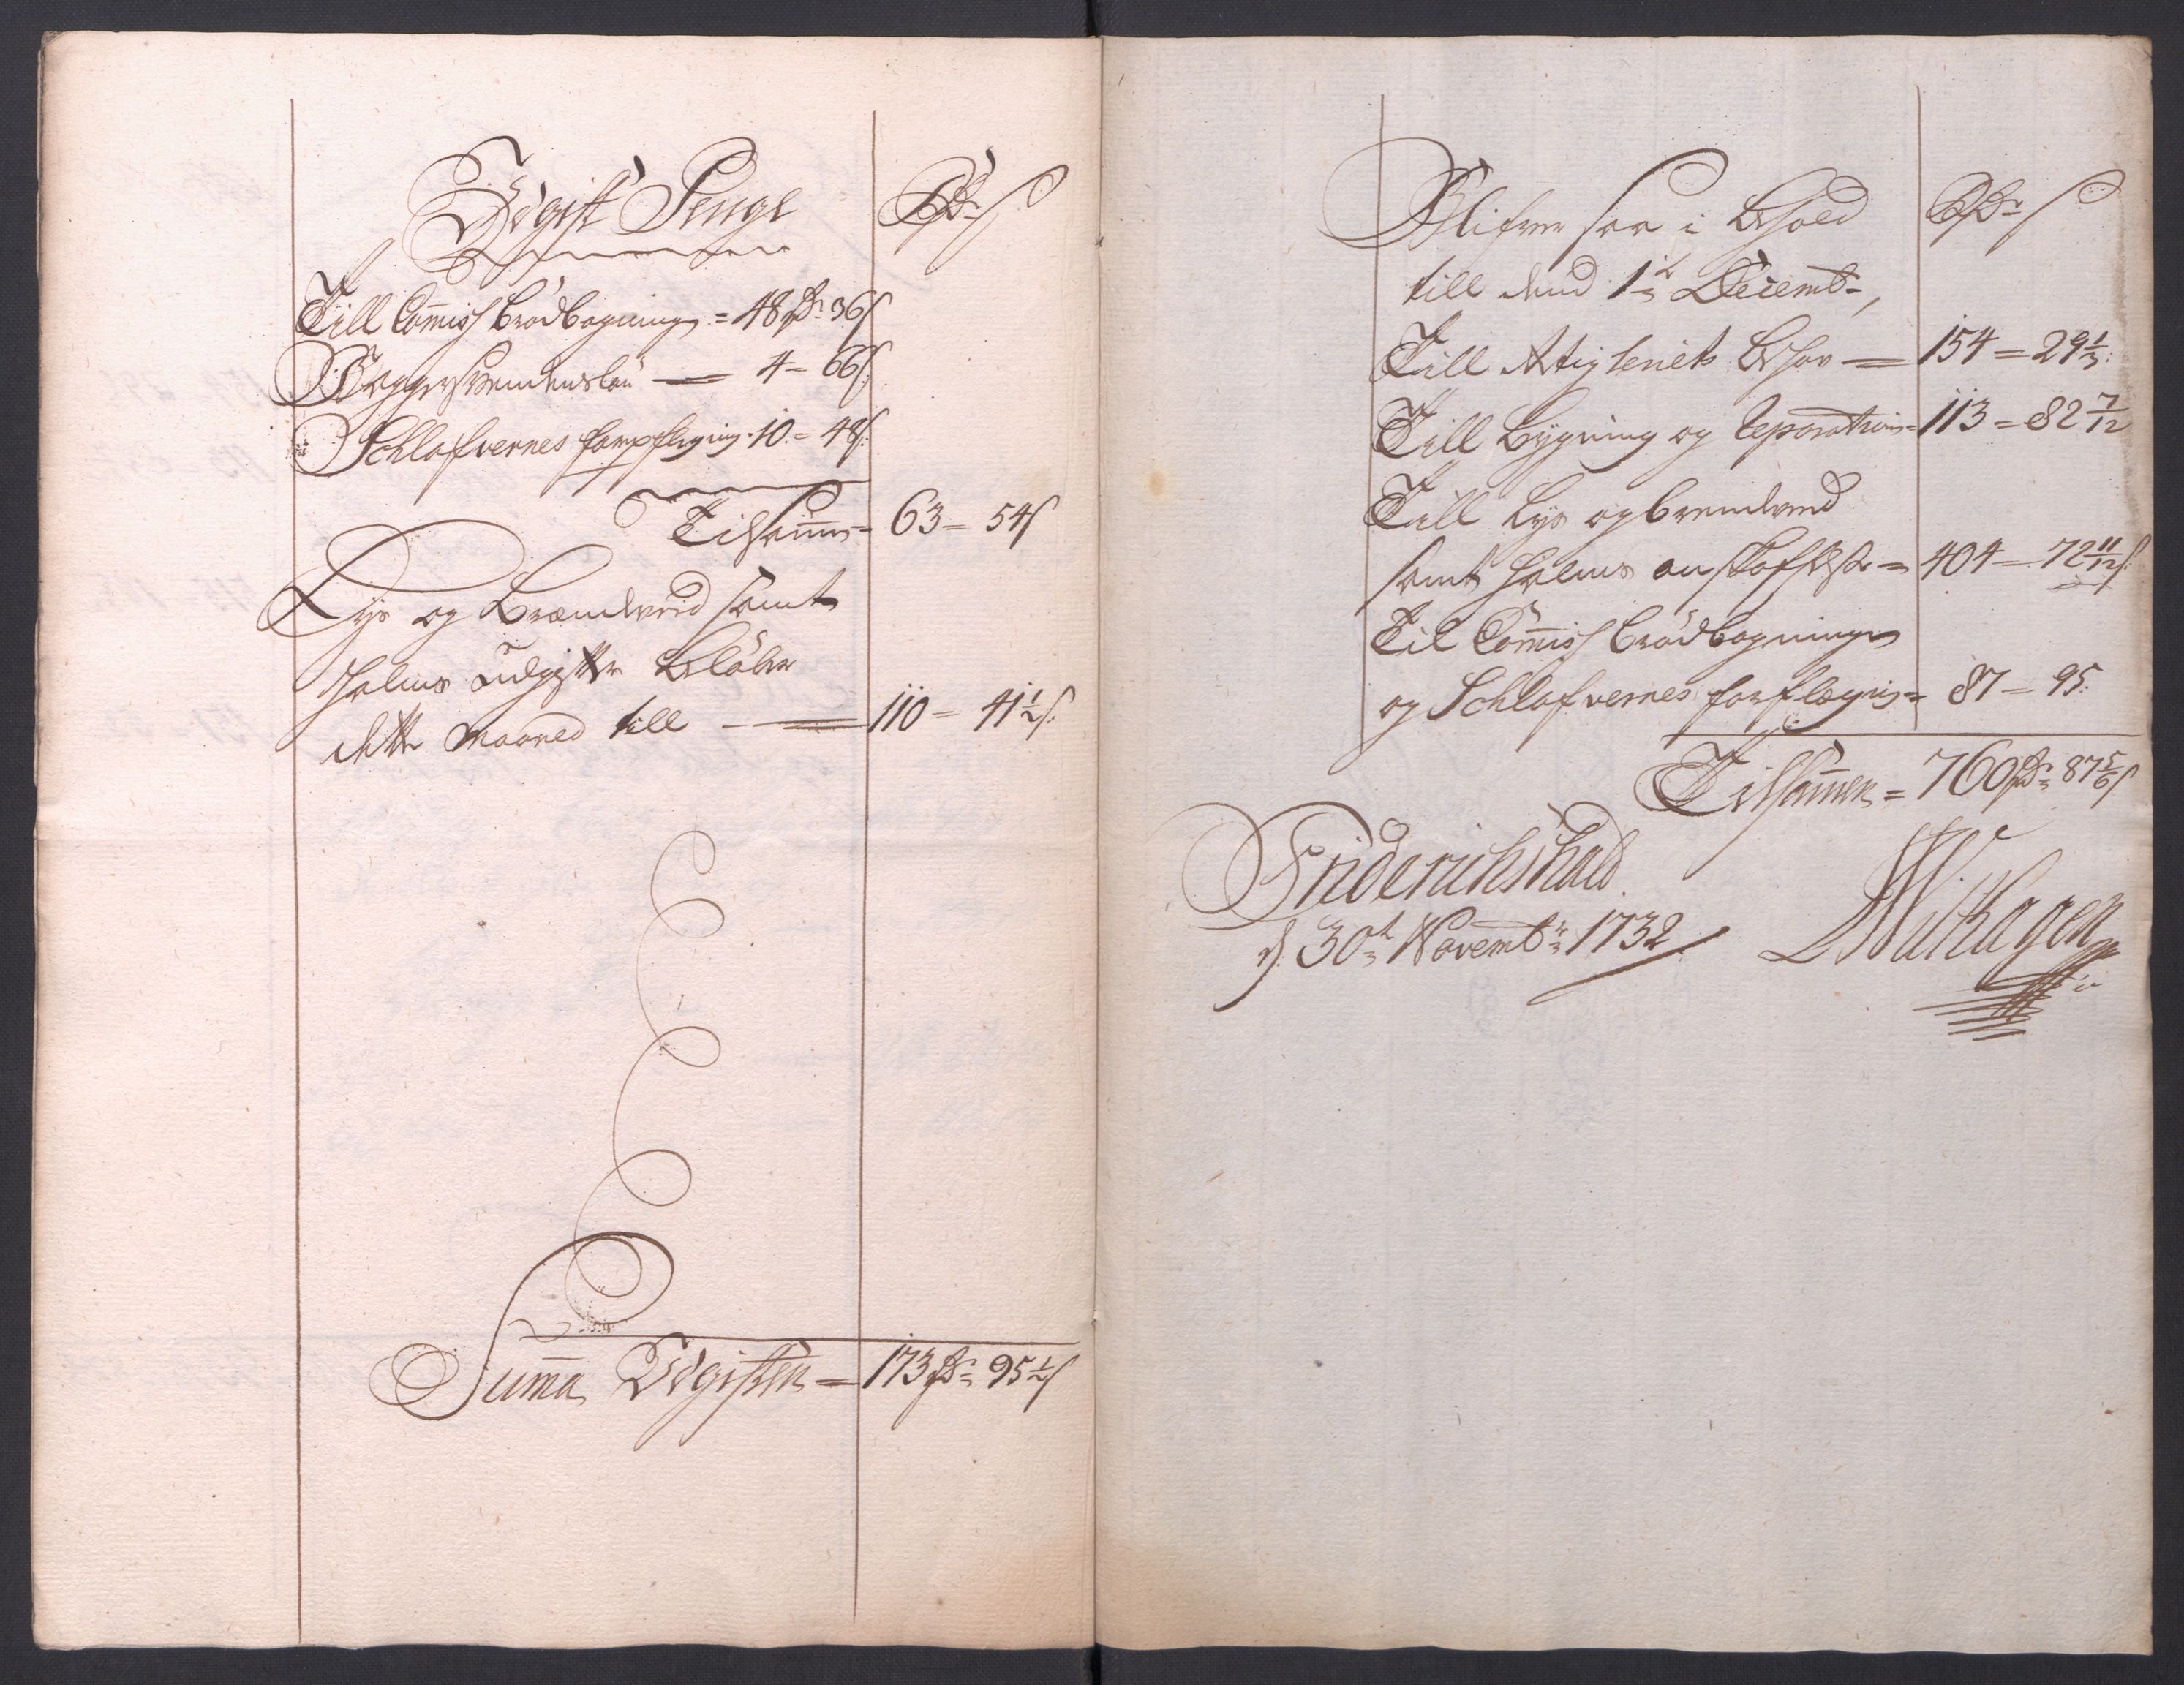 Udgift Penge Rdr ß
Till Com̄iss brödbagning = 48 Rdr 36 ß
Baggersvendenslön — 4 - 66 ß
Schlafvernes forpflegning 10 = 48 ß
Tilsam̄en = 63 = 54 ß
Lÿs og Brændveed samt
Halms udgifter belöber
dette maaned till — 110 = 41 1/2 ß
Sum̄a Udgiften = 173 Rdr = 95 1/2 ß
Blifver saa i behold Rdr ß
till dend 1te Decemb:
Till Artigleriets behov — 154 = 29 1/3
Till Bÿgning og Reparation = 113 = 82 7/12
Till Lÿs og brendeveed
samt halms anskaffelse = 404 = 72 11/12 ß
Til Com̄iss brödbagningen
og Schlafvernes forflegnig = 87 = 95
Tilsam̄en = 760 Rdr 87 5/6 ß
Friderichshald
d. 30t Novembr 1732
Withagen